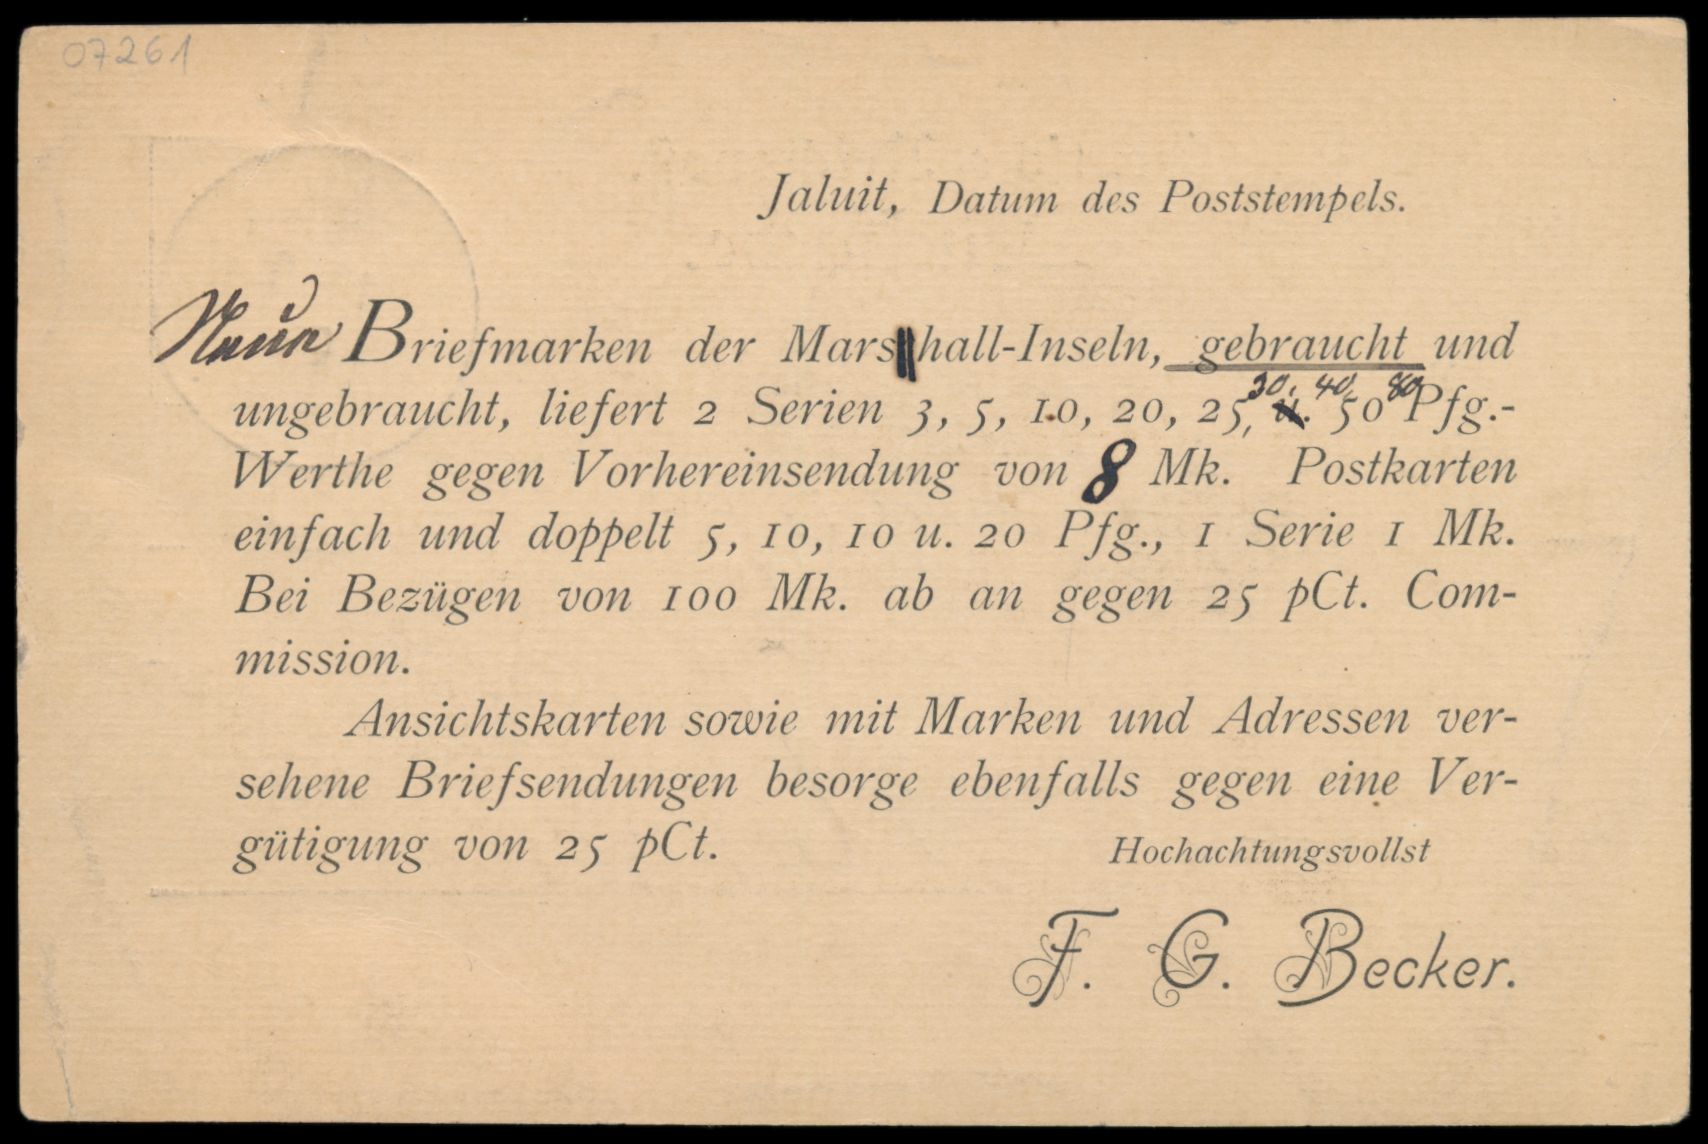 07261
Jaluit, Datum des Poststempels.
Neue Briefmarken der Marshall-Inseln, gebraucht und
30, 40, 80
ungebraucht, liefert 2 Serien 3, 5, 10, 20, 25, u. 50 Pfg.-
Werthe gegen Vorhereinsendung von 8 Mk. Postkarten
einfach und doppelt 5, 10, 10 u. 20 Pfg., 1 Serie 1 Mk.
Bei Bezügen von 100 Mk. ab an gegen 25 pCt. Com-
mission.
Ansichtskarten sowie mit Marken und Adressen ver-
sehene Briefsendungen besorge ebenfalls gegen eine Ver-
gütigung von 25 pCt.
Hochachtungsvollst
F. G. Becker.